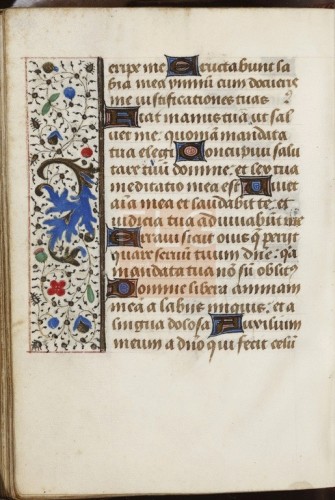 eripe me Eructabunt la
bia mea ymnum cum docueris
me iustificationes tuas
Fiat manus tua ut sal
uet me: quoniam mandata
tua elegi Concupiui salu
tare tuum domine: et lex tua
meditatio mea est Uiuet
aīa mea et laudabit te: et
iudicia tua adiuuabūt me
Erraui sicut ouis q̄ perijt
quare seruū tuum dn̄e: q̄a
mandata tua nō sū oblit9
Domine libera animam
mea a labijs iniquis: et a
lingua dolosa Auxilium
meum a dn̄o qui fecit celū